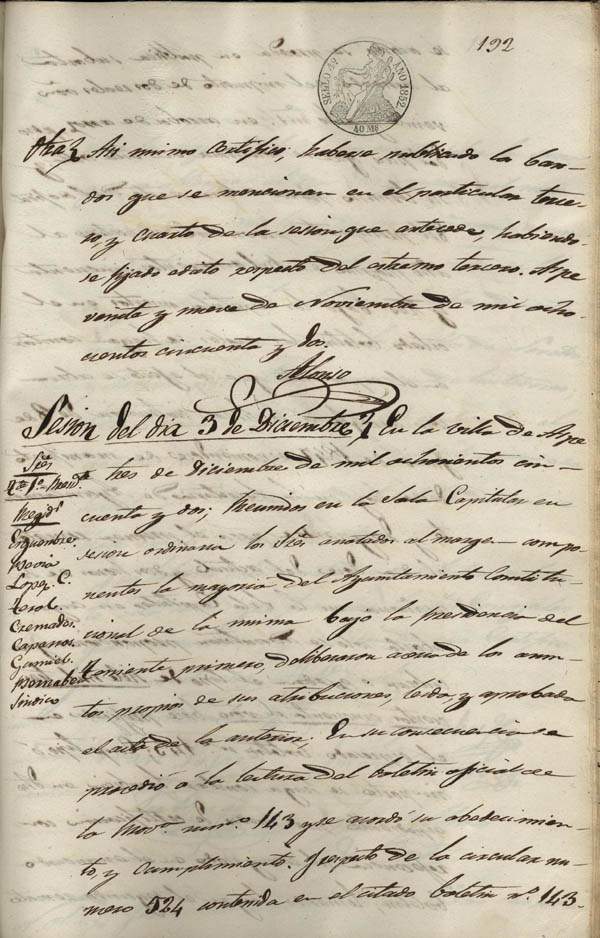 192
SELLO 4º AÑO 1852
40 Ms
Otra } Asi mismo Certifico; haberse publicado los ban-
dos que se mencionan en el particular terce-
ro, y cuarto de la sesion que antecede, habiendo-
se fijado edicto respecto del estremo tercero. Aspe
veinte y nueve de Noviembre de mil ocho-
cientos cincuenta y dos.
Alonso
Sesion del dia 3 de Diciembre } En la villa de Aspe
tres de diciembre de mil ochocientos cin-
cuenta y dos; Reunidos en la Sala Capitular en
sesion ordinaria los Sres. anotados al margen compo-
nentes la mayoria del Ayuntamiento Constitu-
cional de la misma bajo la presidencia del
teniente primero, deliberaron acerca de los asun-
tos propios de sus atribuciones, leida, y aprobada
el acta de la anterior; En su consecuencia se
procedió á la lectura del boletin oficial de
la Prova. numº. 143 y se acordó su obedecimien-
to, y cumplimiento. Y respecto de la circular nu-
mero 524 contenida en el citado boletin nº. 143.
Sres.
Tte. 1º. Presidte.
Regids.
Erquembre.
Lopez C.
Cremades.
Caparros.
Gumiel.
Bernabeu
Sindico